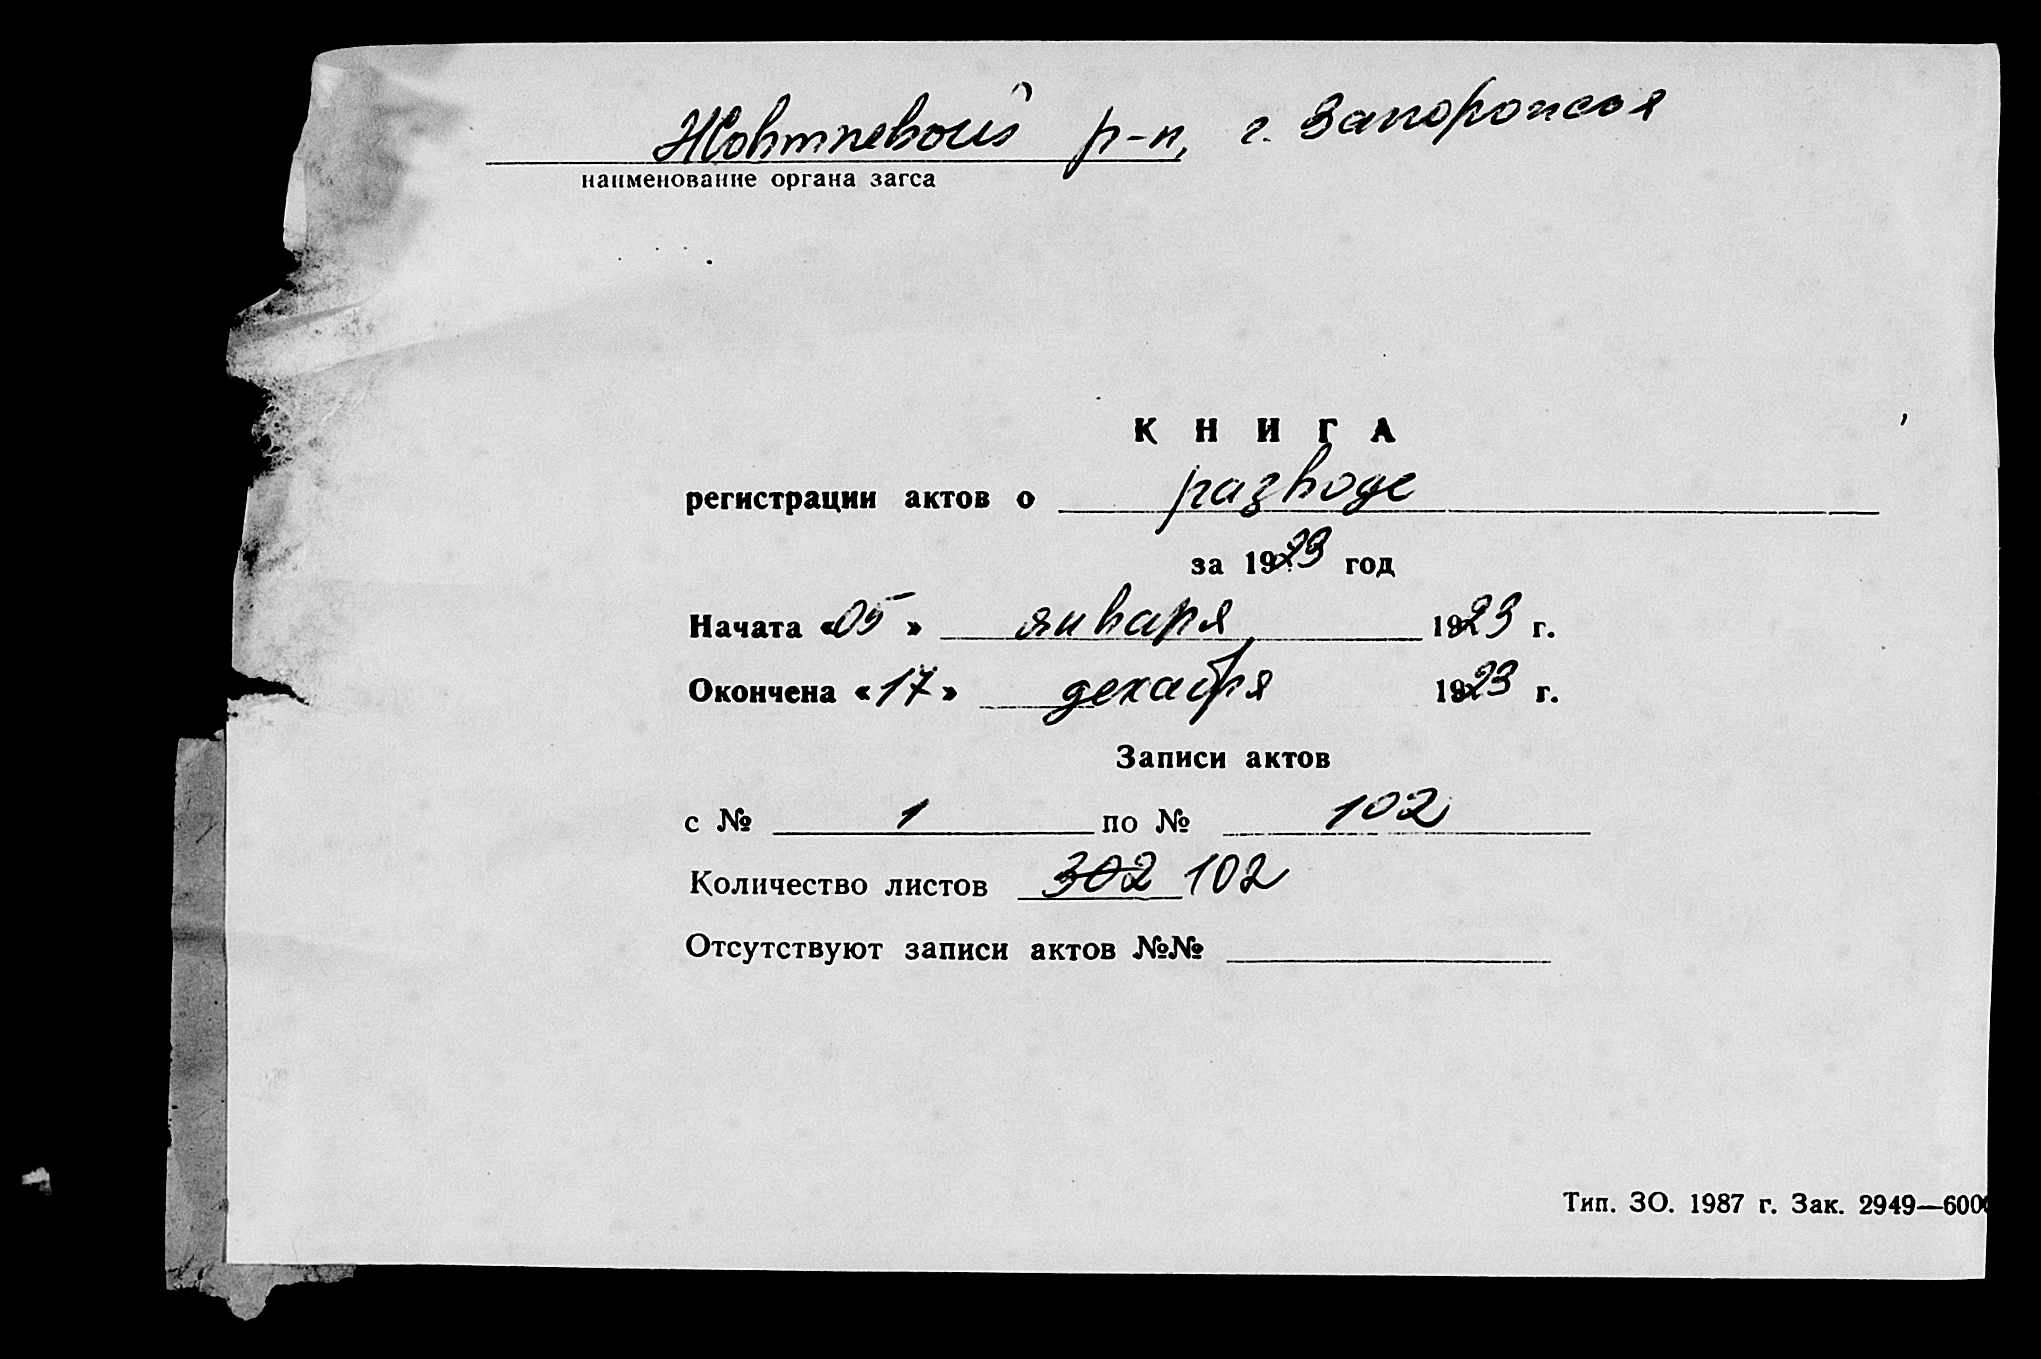 Жовтневый р-н, г. Запорожья
наименование органа загса
КНИГА
регистрации актов о разводе
за 1923 год
Начата «05» января 1923 г.
Окончена «17» декабря 1923 г.
Записи актов
с № 1 по № 102
Количество листов 302 102
Отсутствуют записи актов №№
Тип. ЗО. 1987 г. Зак. 2949—6000